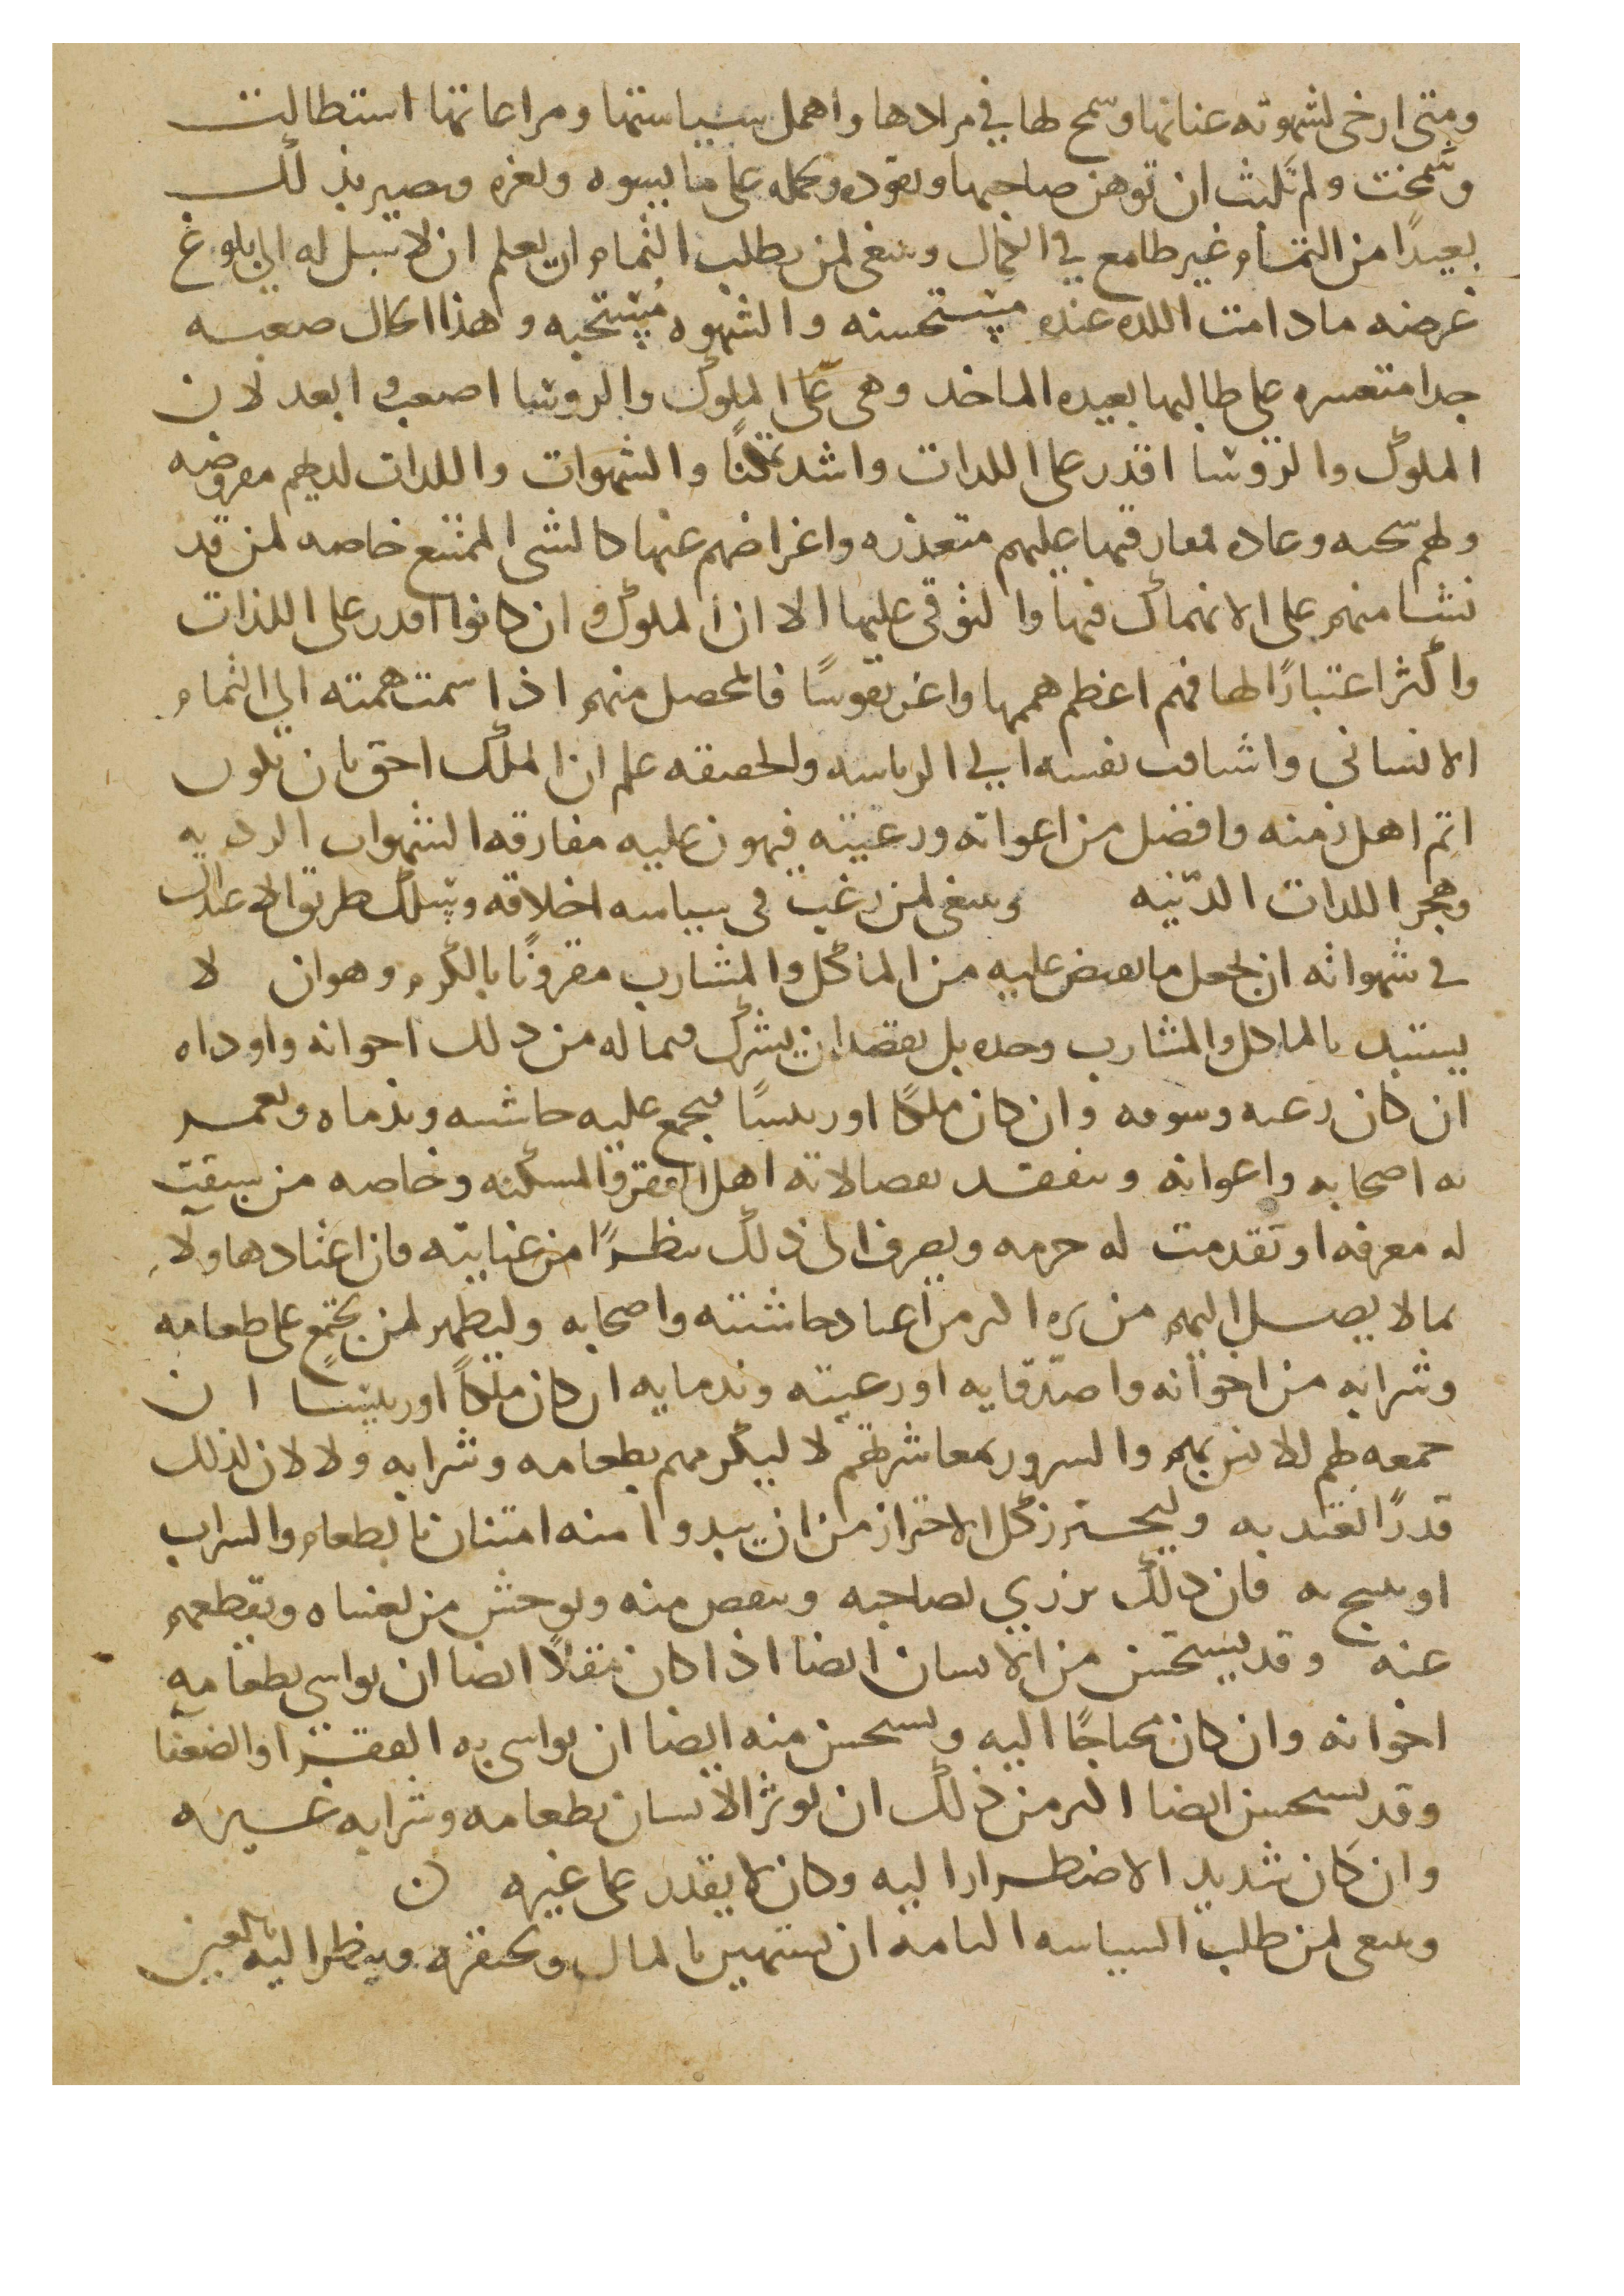 ومتى ارخى لشهوته عنانها وسمح لها في مرادها واهمل سياستها ومراعاتها استطالت
وشمخت ولم تلبث ان توهن صاحبها وتقوده وتحمله على ما يسوه ويغره ويصير بذلك
بعيدًا من التمام غير طامع في الكمال وينبغي لمن يطلب التمام ان يعلم ان لا سبيل له الى بلوغ
غرضه ما دامت اللذه عنده مستحسنه والشهوه مستحبه وهذا الحال صعبه
جدا متعسره على طالبها بعيده الماخذ وهي على الملوك والروسا اصعب وابعد لان
الملوك والروسا اقدر على اللذات واشد تمكنًا والشهوات واللذات لديهم معرضه
ولهم سجيه وعاده مفارقتها عليهم متعذره واعراضهم عنها كالشي الممتنع خاصه لمن قد
نشا منهم على الانهماك فيها والتوقي عليها الا ان الملوك وان كانوا اقدر على اللذات
واكثر اعتبارًا لها فهم اعظم همما واعز نفوسًا فالمحصل منهم اذا سمت همته الى التمام
الانساني واشتاقت نفسه الى الرياسه والحقيقه علم ان الملك احق بان يكون
اتم اهل زمنه وافضل من اعوانه ورعيته فيهون عليه مفارقه الشهوات الرديه
وهجر اللذات الدنيه وينبغي لمن رغب في سياسه اخلاقه ويسلك طريق الاعتدال
في شهواته ان يجعل ما يفيض عليه من الماكل والمشارب مقرونًا بالكرم وهو ان لا
يستبد بالماكل والمشارب وحده بل يقصد ان يشرك فيما له من ذلك اخوانه واوداه
ان كان رعيه وسوقه وان كان ملكًا او رييسًا فيجمع عليه حاشيته وندماه ويعمد
به اصحابه واعوانه ويتفقد بفضالاته اهل الفقر والمسكنه وخاصه من سبقت
له معرفه او تقدمت له حرمه ويصرف الى ذلك نظرًا من عنايته فان اعتادها ولا
بما لا يصل اليهم من بره اكثر من اعتياد حاشيته واصحابه وليظهر لمن يجتمع على طعامه
وشرابه من اخوانه واصدقايه او رعيته وندمايه ان كان ملكًا او رييسا ان
جمعه لهم للانس بهم والسرور بمعاشرتهم لا ليكرمهم بطعامه وشرابه ولا لان لذلك
قدرًا يعتد به وليحترز كل الاحتراز من ان يبدوا منه امتنان بالطعام والشراب
او يتبجح به فان ذلك يزري بصاحبه وينقص منه ويوحش من يغشاه ويقطعهم
عنه وقد يستحسن من الانسان ايضا اذا كان مقلًا ايضا ان يواسي بطعامه
اخوانه وان كان محتاجًا اليه ويستحسن منه ايضا ان يواسي به الفقرا والضعفا
وقد يستحسن ايضا اكثر من ذلك ان يوثر الانسان بطعامه وشرابه غيره
وان كان شديد الاضطرار اليه وكان لا يقدر على غيره ن
وينبغي لمن طلب السياسه التامه ان يستهين بالمال ويحتقره وينظر اليه بالعين